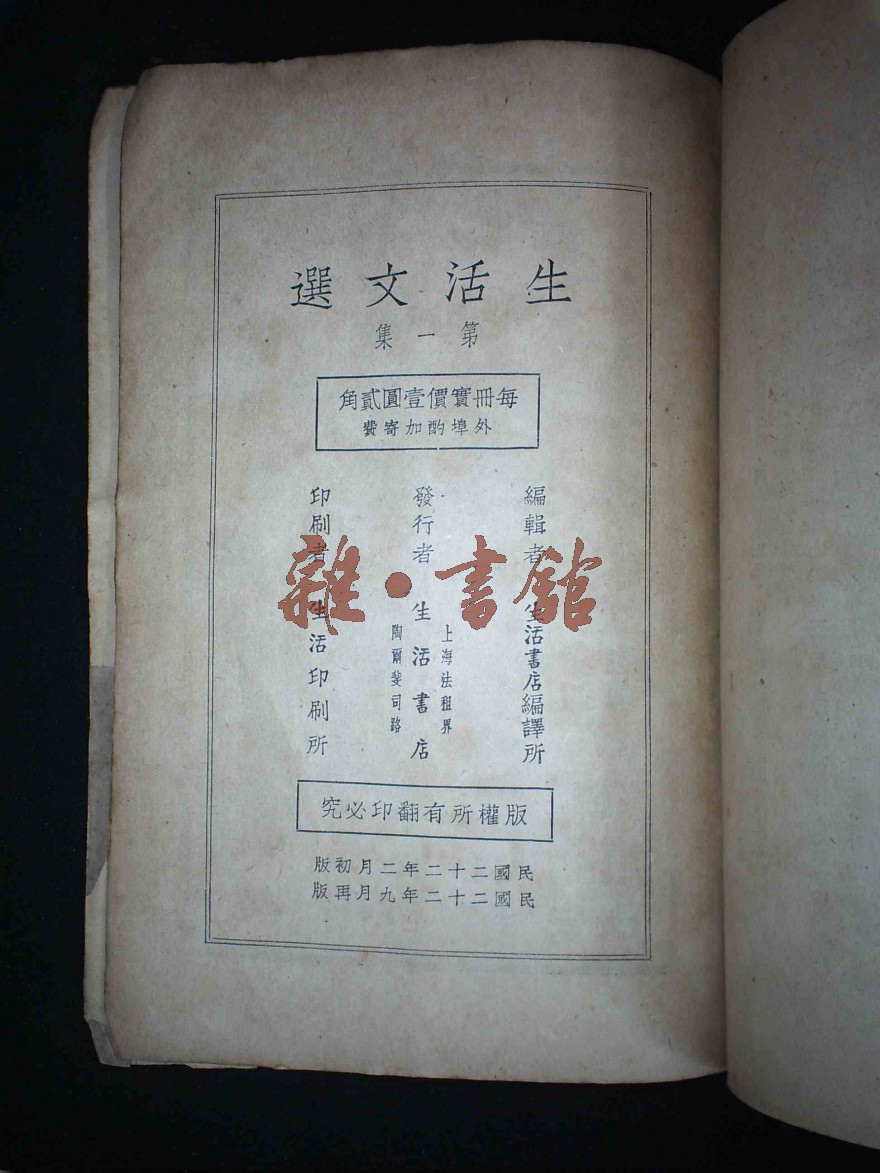 生活文選
第一集
每冊實價壹圓貳角
外埠酌加寄費
編輯者 生活書店編譯所
發行者 生活書店
上海法租界
陶爾斐司路
印刷者 生活印刷所
版權所有翻印必究
民國二十二年二月初版
民國二十二年九月再版
雜·書館